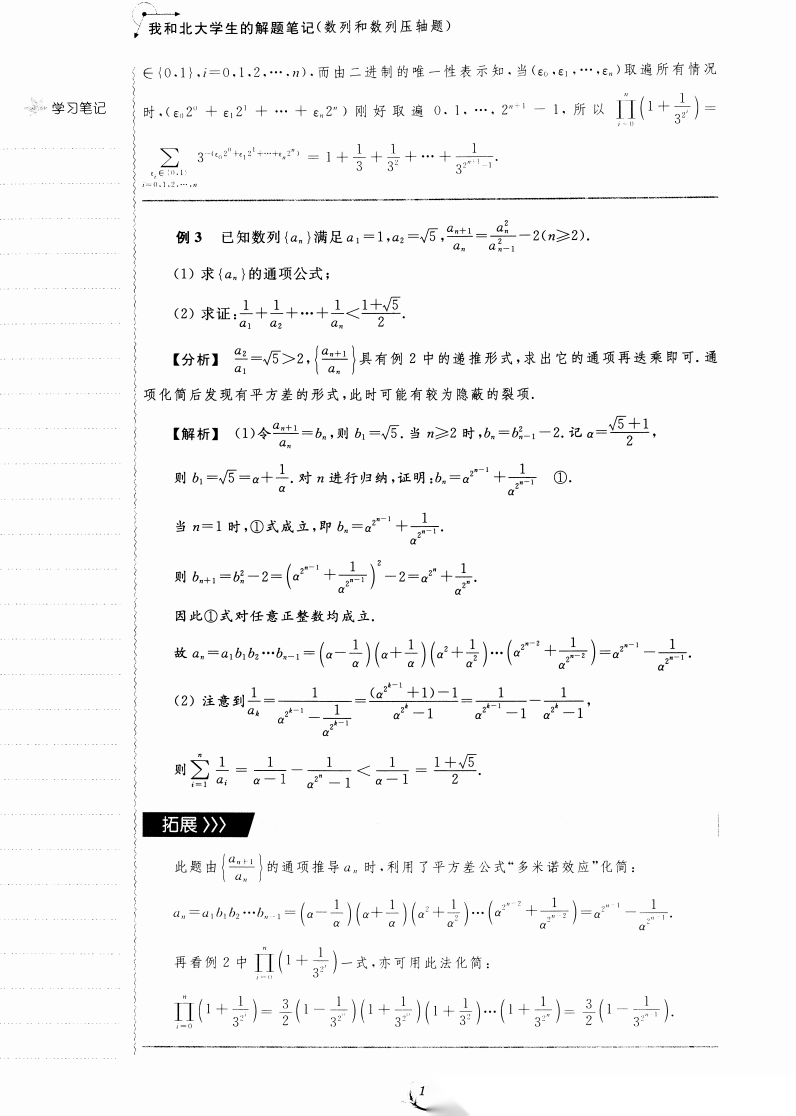 我和北大学生的解题笔记(数列和数列压轴题)
∈{0,1},i=0,1,2,⋯,n),而由二进制的唯一性表示知,当(ε₀,ε₁,⋯,εₙ)取遍所有情况
学习笔记
时,(ε₀2⁰ + ε₁2¹ + ⋯ + εₙ2ⁿ) 刚好取遍 0, 1, ⋯, 2^{n+1} − 1, 所以 ∏_{i=0}^{n}(1+1/3^{2^i}) =
∑_{ε_i∈{0,1}, i=0,1,2,⋯,n} 3^{−(ε₀2⁰+ε₁2¹+⋯+εₙ2ⁿ)} = 1 + 1/3 + 1/3² + ⋯ + 1/3^{2^{n+1}−1}.
例 3 已知数列{aₙ}满足 a₁=1,a₂=√5,a_{n+1}/a_n=a_n²/a_{n−1}²−2(n≥2).
(1) 求{aₙ}的通项公式;
(2) 求证:1/a₁+1/a₂+⋯+1/aₙ<(1+√5)/2.
【分析】 a₂/a₁=√5>2,{a_{n+1}/a_n}具有例 2 中的递推形式,求出它的通项再迭乘即可.通
项化简后发现有平方差的形式,此时可能有较为隐蔽的裂项.
【解析】 (1)令a_{n+1}/a_n=bₙ,则 b₁=√5.当 n≥2 时,bₙ=b_{n−1}²−2.记 α=(√5+1)/2,
则 b₁=√5=α+1/α.对 n 进行归纳,证明:bₙ=α^{2^{n−1}}+1/α^{2^{n−1}} ①.
当 n=1 时,①式成立,即 bₙ=α^{2^{n−1}}+1/α^{2^{n−1}}.
则 b_{n+1}=bₙ²−2=(α^{2^{n−1}}+1/α^{2^{n−1}})²−2=α^{2^n}+1/α^{2^n}.
因此①式对任意正整数均成立.
故 aₙ=a₁b₁b₂⋯b_{n−1}=(α−1/α)(α+1/α)(α²+1/α²)⋯(α^{2^{n−2}}+1/α^{2^{n−2}})=α^{2^{n−1}}−1/α^{2^{n−1}}.
(2) 注意到1/a_k=1/(α^{2^{k−1}}−1/α^{2^{k−1}})=((α^{2^{k−1}}+1)−1)/(α^{2^k}−1)=1/(α^{2^{k−1}}−1)−1/(α^{2^k}−1),
则∑_{i=1}^{n} 1/a_i = 1/(α−1) − 1/(α^{2^n}−1) < 1/(α−1) = (1+√5)/2.
拓展 》》
此题由{a_{n+1}/a_n}的通项推导 aₙ 时,利用了平方差公式“多米诺效应”化简:
aₙ=a₁b₁b₂⋯b_{n−1}=(α−1/α)(α+1/α)(α²+1/α²)⋯(α^{2^{n−2}}+1/α^{2^{n−2}})=α^{2^{n−1}}−1/α^{2^{n−1}}.
再看例 2 中 ∏_{i=0}^{n}(1+1/3^{2^i})一式,亦可用此法化简:
∏_{i=0}^{n}(1+1/3^{2^i})=3/2(1−1/3^{2^0})(1+1/3^{2^0})(1+1/3^{2^1})⋯(1+1/3^{2^n})=3/2(1−1/3^{2^{n+1}}).